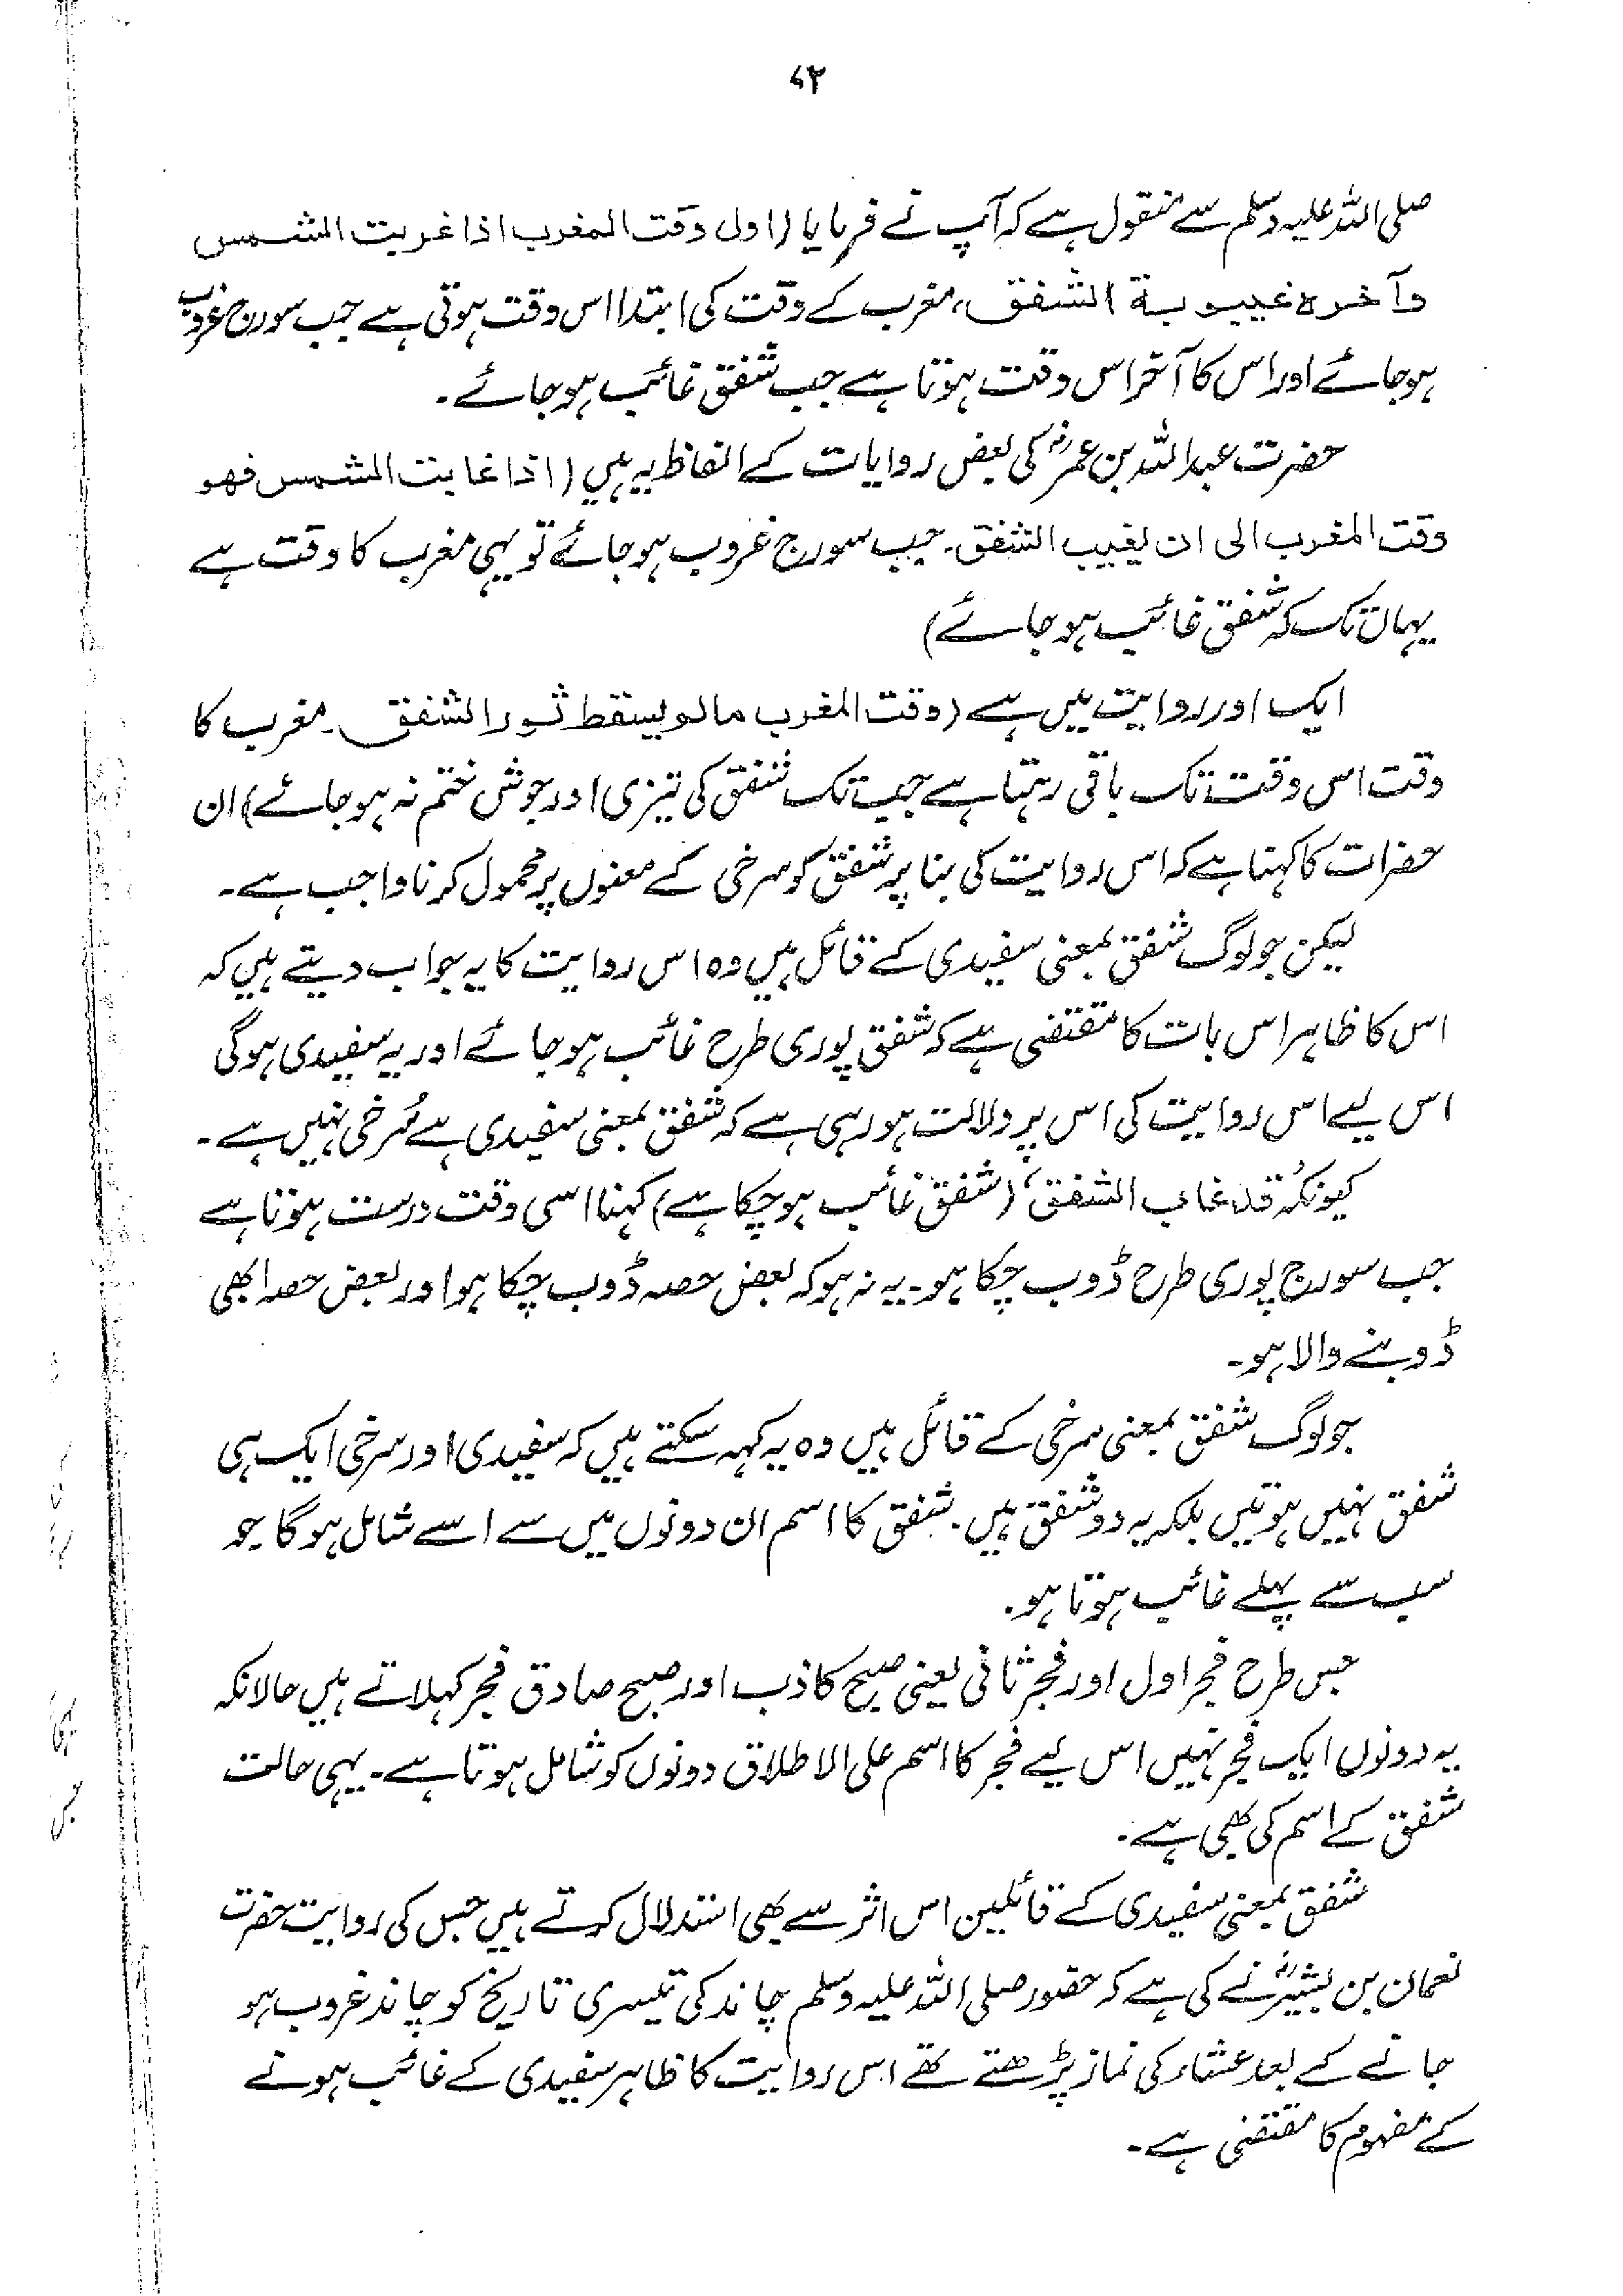 ۷۲
صلی اللہ علیہ وسلم سے منقول ہے کہ آپ نے فرمایا (اول وقت المغرب اذا غربت الشمس
وآخرہ غیبوبة الشفق، مغرب کے وقت کی ابتدا اس وقت ہوتی ہے جب سورج غروب
ہو جائے اور اس کا آخر اس وقت ہوتا ہے جب شفق غائب ہو جائے۔
حضرت عبداللہ بن عمرؓ کی بعض روایات کے الفاظ یہ ہیں (اذا غابت الشمس فھو
وقت المغرب الی ان یغیب الشفق۔ جب سورج غروب ہو جائے تو یہی مغرب کا وقت ہے
یہاں تک کہ شفق غائب ہو جائے)
ایک اور روایت میں ہے (وقت المغرب مالو یسقط ثور الشفق۔ مغرب کا
وقت اس وقت تک باقی رہتا ہے جب تک شفق کی تیزی اور جوش ختم نہ ہو جائے) ان
حضرات کا کہنا ہے کہ اس روایت کی بنا پر شفق کو سرخی کے معنوں پر محمول کرنا واجب ہے۔
لیکن جو لوگ شفق بمعنی سفیدی کے قائل ہیں وہ اس روایت کا یہ جواب دیتے ہیں کہ
اس کا ظاہر اس بات کا مقتضی ہے کہ شفق پوری طرح غائب ہو جائے اور یہ سفیدی ہوگی
اس لیے اس روایت کی اس پر دلالت ہو رہی ہے کہ شفق بمعنی سفیدی ہے سُرخی نہیں ہے۔
کیونکہ ُقد غاب الشفق ٗ (شفق غائب ہو چکا ہے) کہنا اسی وقت درست ہوتا ہے
جب سورج پوری طرح ڈوب چکا ہو۔ یہ نہ ہو کہ بعض حصہ ڈوب چکا ہو اور بعض حصہ ابھی
ڈوبنے والا ہو۔
جو لوگ شفق بمعنی سرخی کے قائل ہیں وہ یہ کہہ سکتے ہیں کہ سفیدی اور سرخی ایک ہی
شفق نہیں ہوتیں بلکہ یہ دو شفق ہیں۔ شفق کا اسم ان دونوں میں سے اسے شامل ہوگا جو
سب سے پہلے غائب ہوتا ہو۔
جس طرح فجر اول اور فجر ثانی یعنی صبح کاذب اور صبح صادق فجر کہلاتے ہیں حالانکہ
یہ دونوں ایک فجر نہیں اس لیے فجر کا اسم علی الاطلاق دونوں کو شامل ہوتا ہے۔ یہی حالت
شفق کے اسم کی بھی ہے۔
شفق بمعنی سفیدی کے قائلین اس اثر سے بھی استدلال کرتے ہیں جس کی روایت حضرت
نعمان بن بشیرؓ نے کی ہے کہ حضور صلی اللہ علیہ وسلم چاند کی تیسری تاریخ کو چاند غروب ہو
جانے کے بعد عشاء کی نماز پڑھتے تھے اس روایت کا ظاہر سفیدی کے غائب ہونے
کے مفہوم کا مقتضی ہے۔